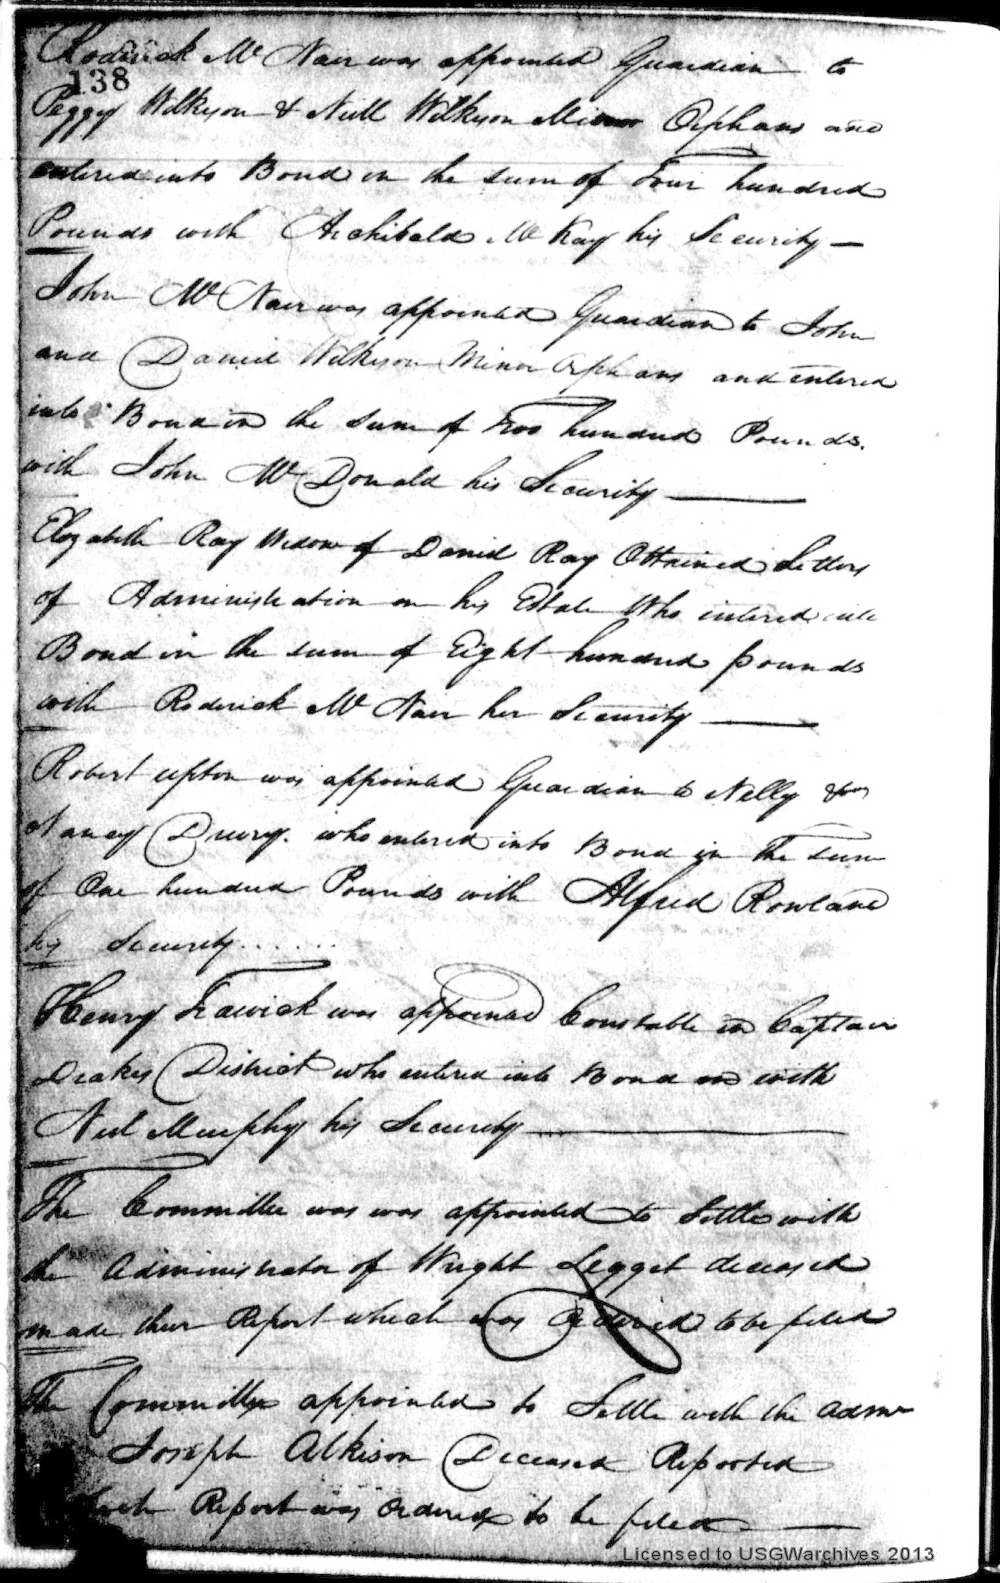 Roderick Mc Nair was appointed Guardian to
138
Peggy Wilkyson & Neill Wilkyson Minor Orphans and
entered into Bond in the sum of Four hundred
Pounds with Archibald McKay his Security —
John Mc Nair was appointed Guardian to John
and Daniel Wilkyson Minor Orphans and entered
into Bond in the Sum of Two hundred Pounds.
with John McDonald his Security —
Elizabeth Ray Widow of Daniel Ray Obtained Letters
of Administration on his Estate Who intered into
Bond in the sum of Eight hundred pounds
with Roderick Mc Nair her Security —
Robert upton was appointed Guardian to Nelly
Nancy Drury. who entered into Bond in the sum
of One hundred Pounds with Alfred Rowland
his Security......
Henry Trawick was appointed Constable in Captain
Deakes District who entered into Bond with
Neil Murphy his Security —
The Committee was was appointed to Settle with
the Administrator of Wright Legget deceased
made their Report which was Ordered to be filed
The Committee appointed to Settle with the Admr
Joseph Atkison Deceased Reported
Report was Ordered to be filed —
Licensed to USGWarchives 2013